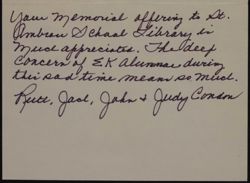 Your Memorial offering to St.
Ambrose School Library is
Much appreciated. The deep
concern of E K Alumnae during
this sad time mean so much.
Russ, Jack, John & Judy Condon